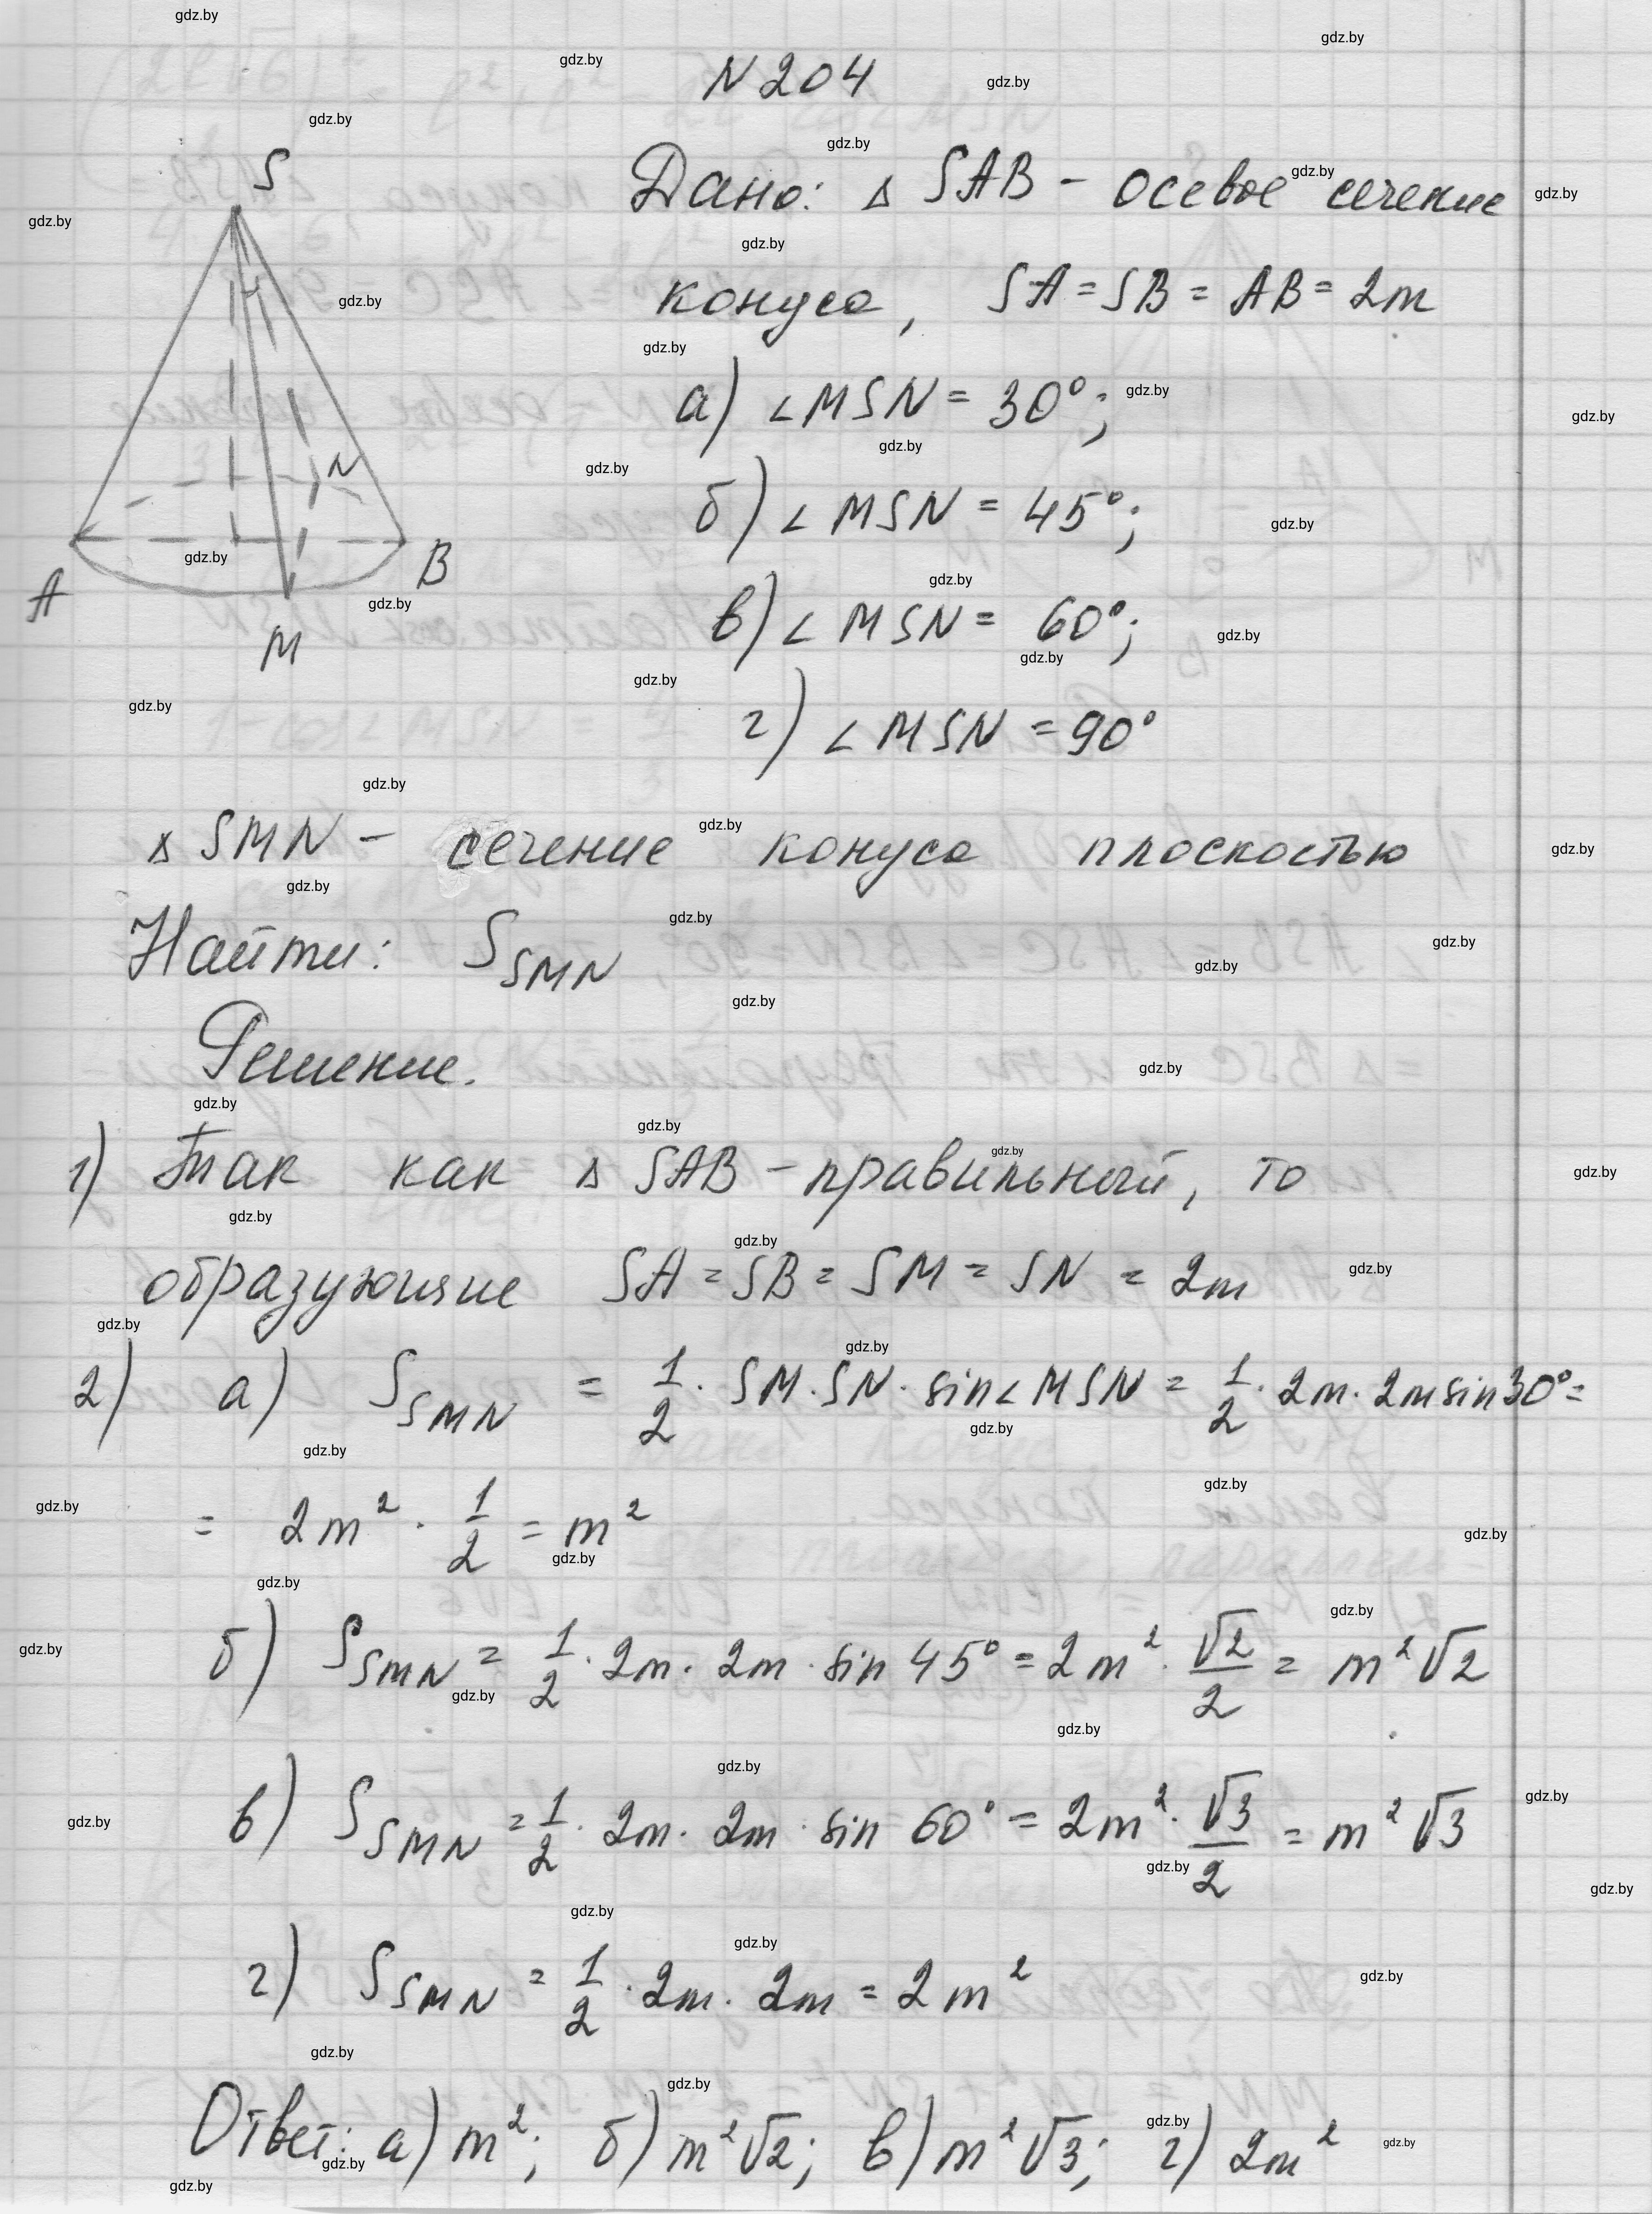 N204
S
Дано: Δ SAB - осевое сечение
конуса, SA = SB = AB = 2m
а) ∠MSN = 30°;
N
б) ∠MSN = 45°;
A
B
в) ∠MSN = 60°;
M
г) ∠MSN = 90°
Δ SMN - сечение конуса плоскостью
Найти: S_SMN
Решение.
1) Так как Δ SAB - правильный, то
образующие SA = SB = SM = SN = 2m
2) а) S_SMN = 1/2 · SM · SN · sin∠MSN = 1/2 · 2m · 2m sin30° =
= 2m² · 1/2 = m²
б) S_SMN = 1/2 · 2m · 2m · sin 45° = 2m² · √2/2 = m²√2
в) S_SMN = 1/2 · 2m · 2m · sin 60° = 2m² · √3/2 = m²√3
г) S_SMN = 1/2 · 2m · 2m = 2m²
Ответ: а) m²; б) m²√2; в) m²√3; г) 2m²
gdz.by